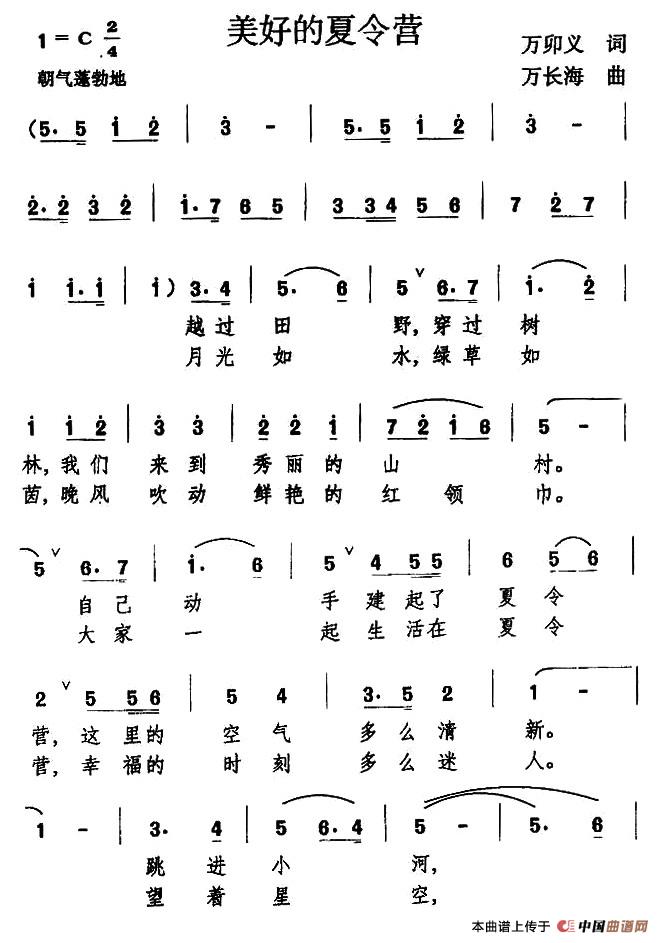 美好的夏令营
1=C 2/4
万卯义 词
朝气蓬勃地
万长海 曲
(5·5 1 2 | 3 - | 5·5 1 2 | 3 - |
2·2 3 2 | 1·7 6 5 | 3 3 4 5 6 | 7 2 7 |
1 1·1 | 1) 3·4 | 5· 6 | 5 ∨ 6·7 | 1· 2 |
越过 田 野,穿过 树
月光 如 水,绿草 如
1 1 2 | 3 3 | 2 2 1 | 7 2 1 6 | 5 - |
林,我们 来到 秀丽的 山 村。
茵,晚风 吹动 鲜艳的 红 领 巾。
5 ∨ 6·7 | 1· 6 | 5 ∨ 4 5 5 | 6 5 6 |
自己 动 手 建起了 夏 令
大家 一 起 生活在 夏 令
2 ∨ 5 5 6 | 5 4 | 3·5 2 | 1 - |
营,这里的 空气 多么清 新。
营,幸福的 时刻 多么迷 人。
1 - | 3· 4 | 5 6·4 | 5 - | 5· 6 |
跳 进 小 河,
望 着 星 空,
本曲谱上传于 中国曲谱网